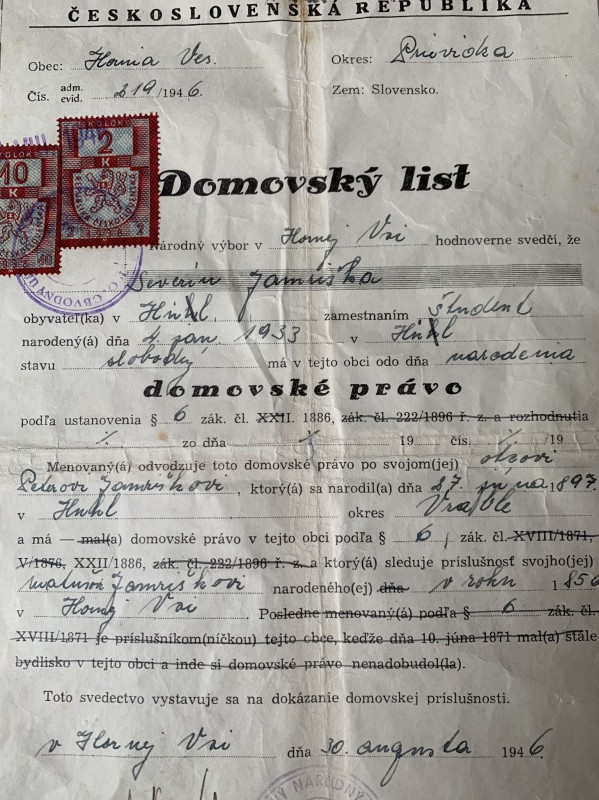 ČESKOSLOVENSKÁ REPUBLIKA
Obec: Horná Ves. Okres: Prievidza
Čís. adm. evid. 219/1946. Zem: Slovensko.
KOLOK KOLOK
10 K 2 K
Domovský list
Národný výbor v Hornej Vsi hodnoverne svedčí, že
Severín Jamriška
obyvateľ(ka) v zamestnaním študent
narodený(á) dňa 4. jan. 1933 v
stavu slobodný má v tejto obci odo dňa narodenia
domovské právo
podľa ustanovenia § 6 zák. čl. XXII. 1886, zák. čl. 222/1896 ř. z. a rozhodnutia
zo dňa 19 čís. /19
Menovaný(á) odvodzuje toto domovské právo po svojom(jej) otcovi
Peterovi Jamriškovi, ktorý(á) sa narodil(a) dňa 27. júna 1897.
v okres Vráble
a má — mal(a) domovské právo v tejto obci podľa § 6, zák. čl. XVIII/1871,
V/1876, XXII/1886, zák. čl. 222/1896 ř. z. a ktorý(á) sleduje príslušnosť svojho(jej)
Jamriškovi narodeného(ej) dňa v roku 1856
v Hornej Vsi Posledne menovaný(á) podľa § 6 zák. čl.
XVIII/1871 je príslušníkom(níčkou) tejto obce, keďže dňa 10. júna 1871 mal(a) stále
bydlisko v tejto obci a inde si domovské právo nenadobudol(la).
Toto svedectvo vystavuje sa na dokázanie domovskej príslušnosti.
v Hornej Vsi dňa 30. augusta 1946.
NÁRODNÝ